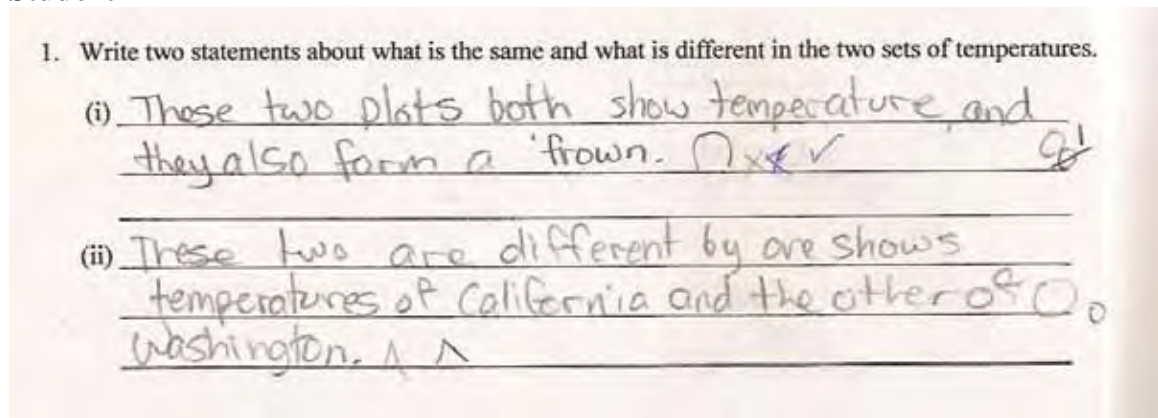 1. Write two statements about what is the same and what is different in the two sets of temperatures.
(i) These two plots both show temperature and
they also form a frown.
(ii) These two are different by one shows
temperatures of California and the other of
Washington.